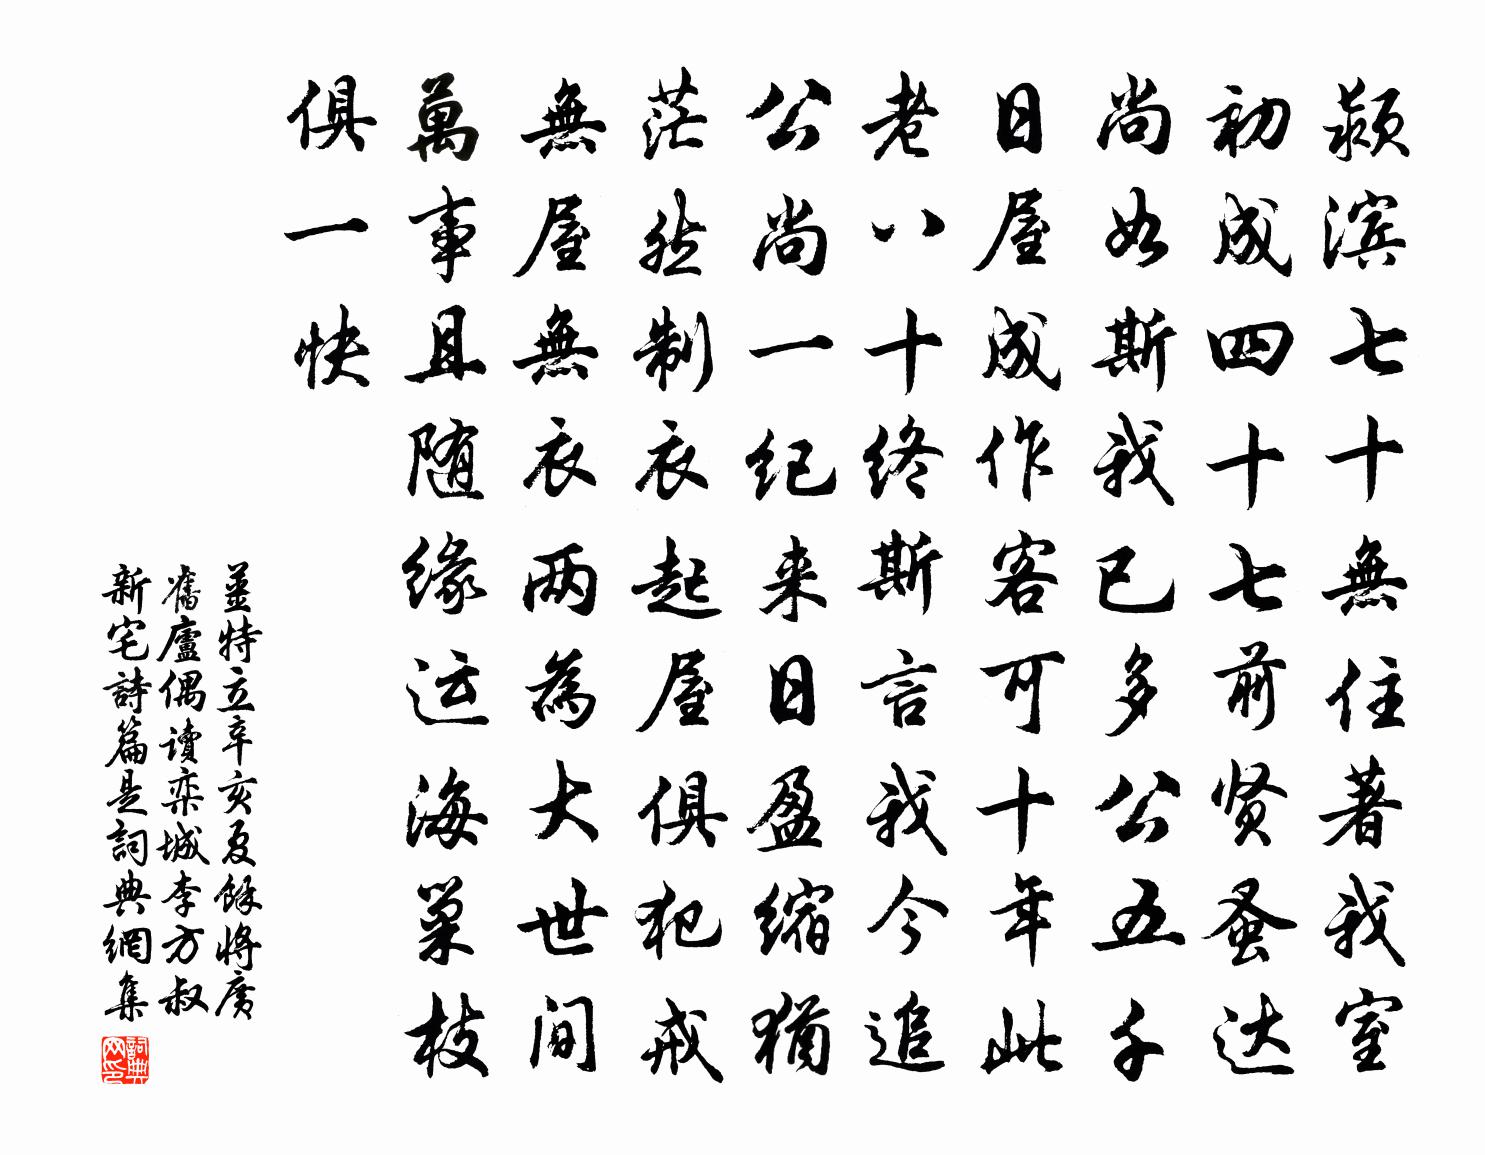 颍滨七十無住著我室
初成四十七前贤蚤达
尚如斯我已多公五千
日屋成作客可十年此
老八十终斯言我今追
公尚一纪来日盈缩猶
茫然制衣起屋俱犯戒
無屋無衣两為大世间
萬事且随缘运海巢枝
俱一快
薑特立辛亥夏餘将廣
舊廬偶讀栾城李方叔
新宅詩篇是詞典網集
詞典
网印